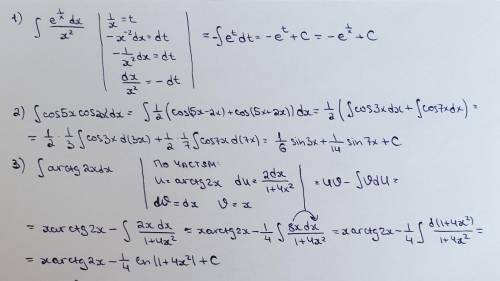 1) ∫ e^(1/x) dx / x² | 1/x = t | = -∫e^t dt = -e^t + C = -e^(1/x) + C
-x⁻²dx = dt
-1/x² dx = dt
dx/x² = -dt
2) ∫cos5x cos2x dx = ∫ 1/2 (cos(5x-2x) + cos(5x+2x)) dx = 1/2 (∫cos3x dx + ∫cos7x dx) =
= 1/2 · 1/3 ∫cos3x d(3x) + 1/2 · 1/7 ∫cos7x d(7x) = 1/6 sin3x + 1/14 sin7x + C
3) ∫arctg2x dx | по частям:
u = arctg2x du = 2dx/(1+4x²) | = uv - ∫vdu =
dv = dx v = x
= x arctg2x - ∫ 2x dx/(1+4x²) = x arctg2x - 1/4 ∫ 8x dx/(1+4x²) = x arctg2x - 1/4 ∫ d(1+4x²)/(1+4x²) =
= x arctg2x - 1/4 ln|1+4x²| + C